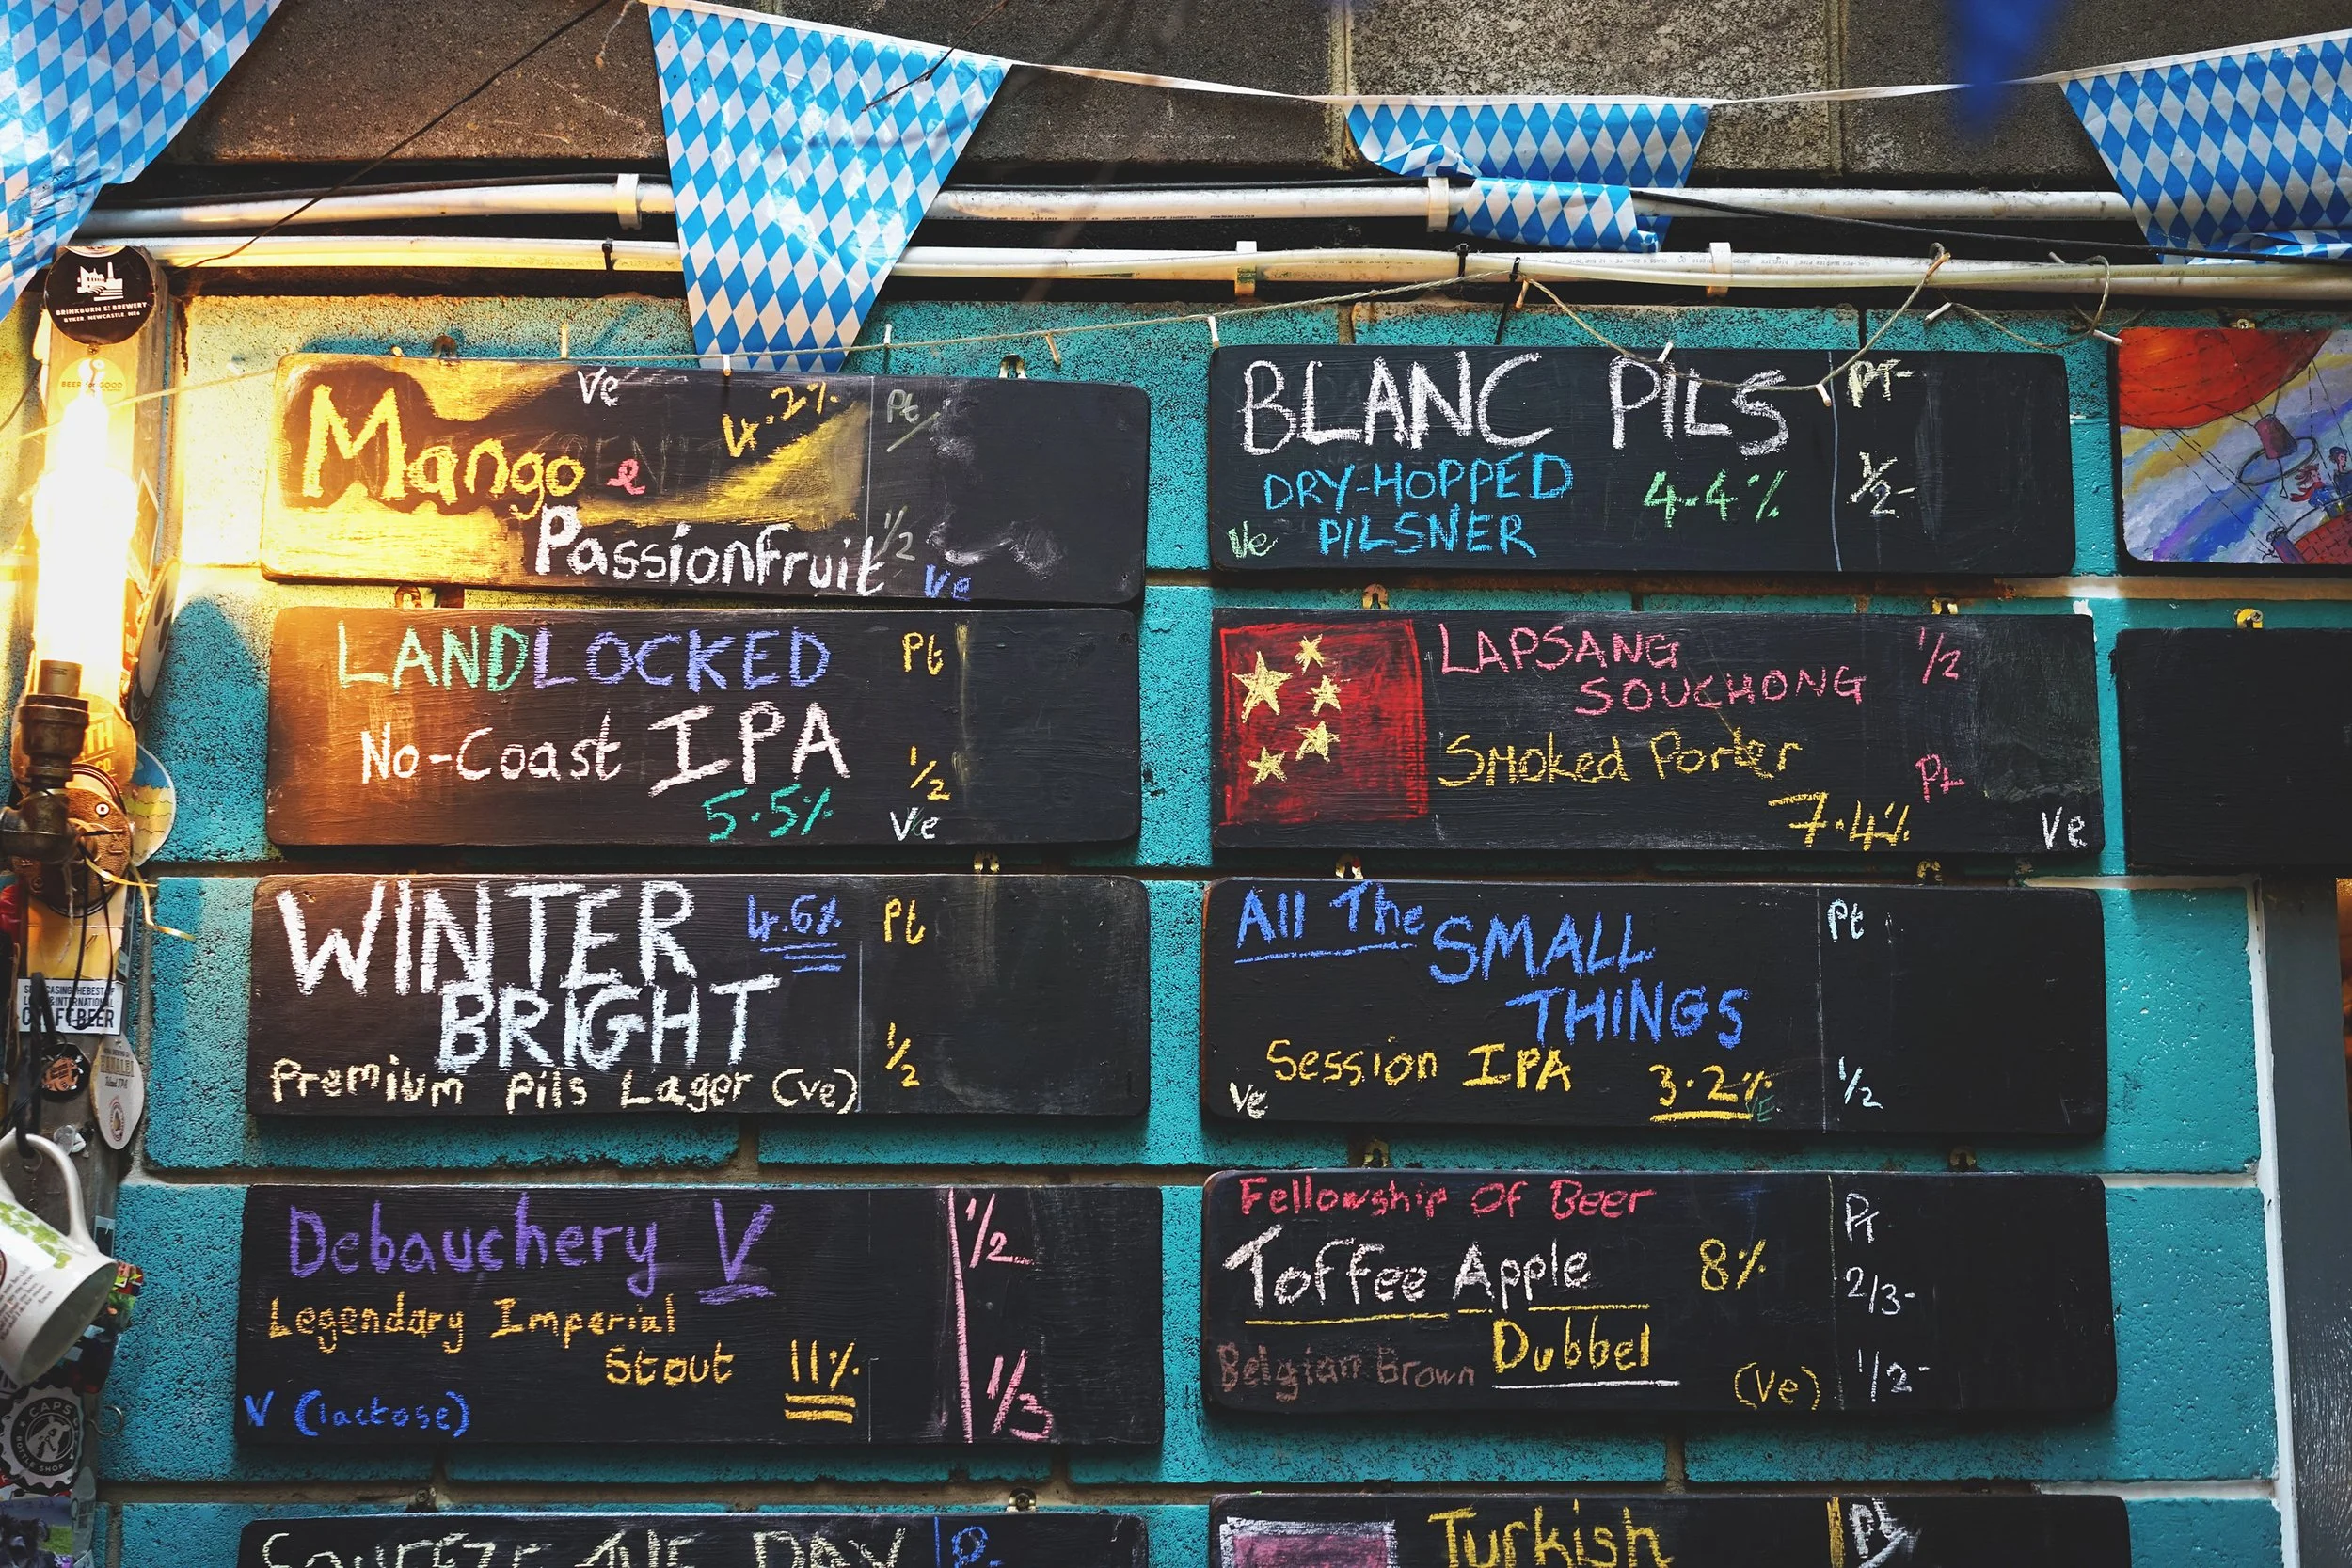 BRINKBURN ST BREWERY
BYKER NEWCASTLE NE6
BEER for GOOD
CRAFT BEER
CAPS
BOTTLE SHOP
Ve
4.2%
Pt
Mango e
Passionfruit
1/2
Ve
LANDLOCKED
Pt
No-Coast IPA
1/2
5.5%
Ve
WINTER
4.6%
Pt
BRIGHT
1/2
Premium Pils Lager (ve)
Debauchery V
1/2
Legendary Imperial
Stout 11%
1/3
V (lactose)
SQUEEZE THE DAY
BLANC PILS
PT-
DRY-HOPPED
4.4%
1/2-
Ve
PILSNER
LAPSANG
1/2
SOUCHONG
Smoked Porter
Pt
7.4%
Ve
All The SMALL
Pt
THiNGS
Session IPA
3.2%
VE
1/2
Ve
Fellowship Of Beer
PT
Toffee Apple
8%
2/3-
Belgian Brown Dubbel
(Ve)
1/2-
Turkish
Pt